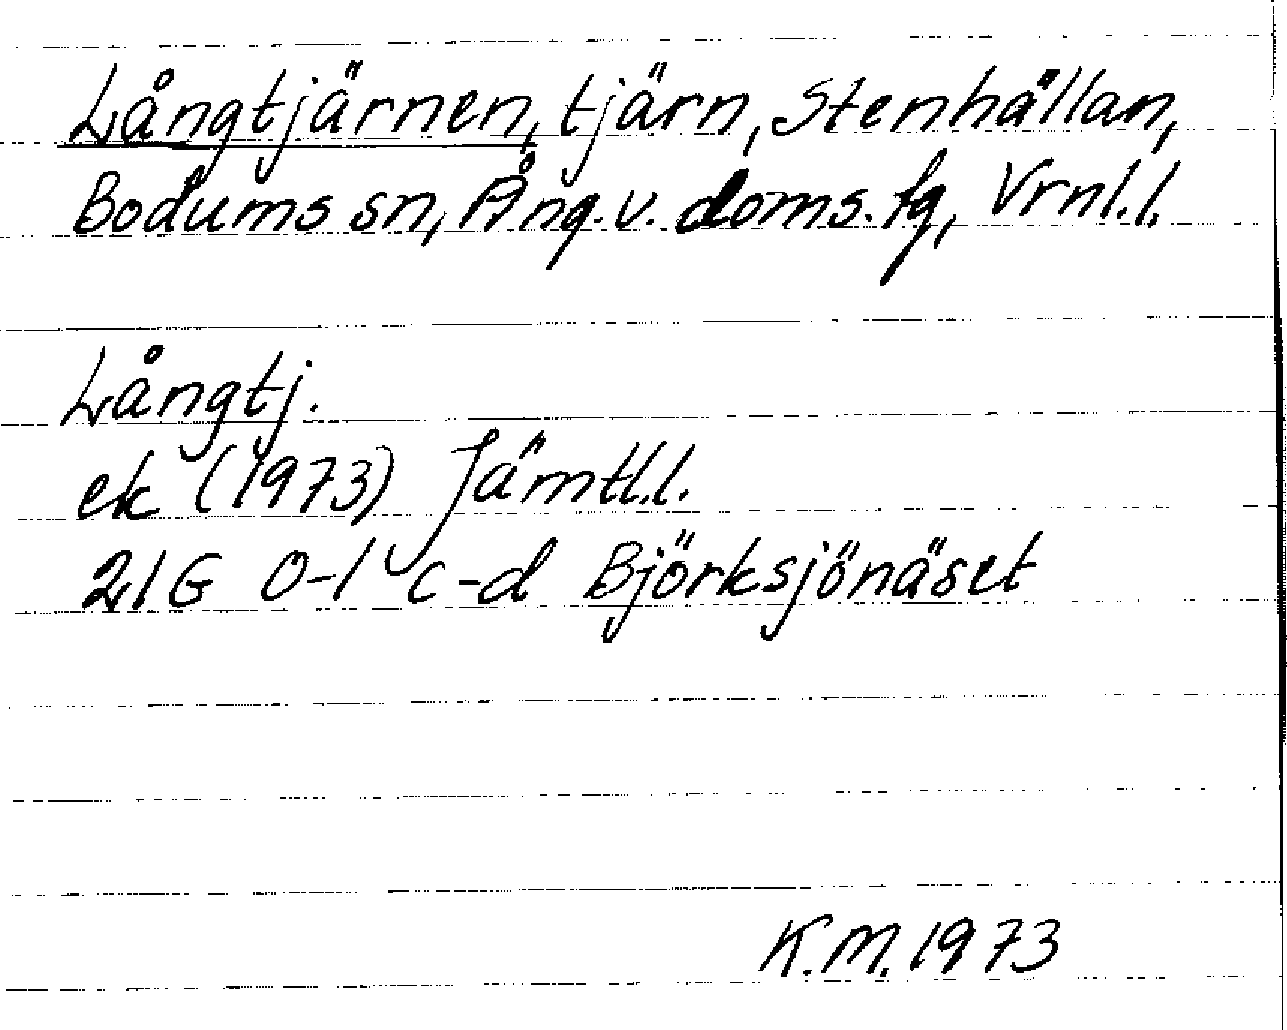 Långtjärnen, tjärn, Stenhällan,
Bodums sn, Ång. v. doms. fg, Vrnl.l.
Långtj.
ek (1973) Jämtl.l.
21G 0-1 c-d Björksjönäset
K.M. 1973